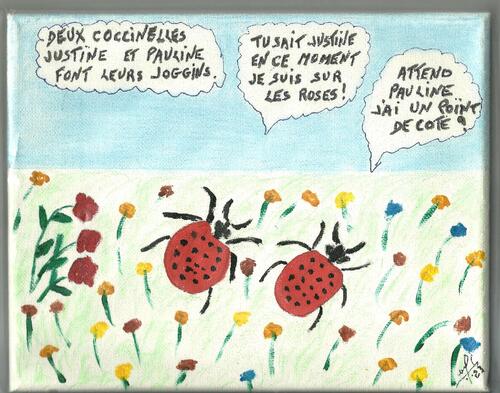 DEUX COCCINELLES
JUSTINE ET PAULINE
FONT LEURS JOGGINS.
TU SAIT JUSTINE
EN CE MOMENT
JE SUIS SUR
LES ROSES!
ATTEND
PAULINE
J'AI UN POINT
DE COTE!